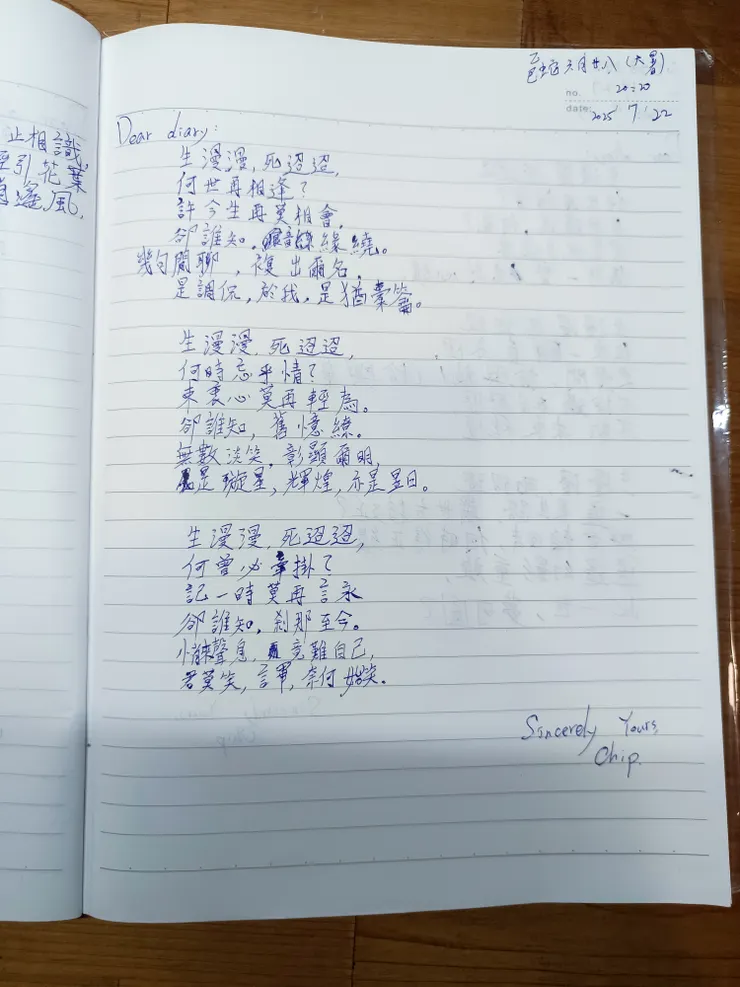 止相識,
引花葉
遙風,
乙巳蛇六月廿八(大暑)
no. 20:20
date: 2025 / 7 / 22
Dear diary:
生漫漫,死迢迢,
何世再相逢?
許今生再莫相會,
卻誰知,緣繞。
幾句閒聊,複出爾名,
是調侃,於我,是猶橐籥。
生漫漫,死迢迢,
何時忘乎情?
束裹心莫再輕為。
卻誰知,舊憶繚。
無數淡笑,彰顯爾明,
是璇星,輝煌,亦是昱日。
生漫漫,死迢迢,
何曾必牽掛?
記一時莫再言永
卻誰知,剎那至今。
悄聲息,竟難自己,
君莫笑,言畢,奈何始笑。
Sincerely Yours,
Chip.